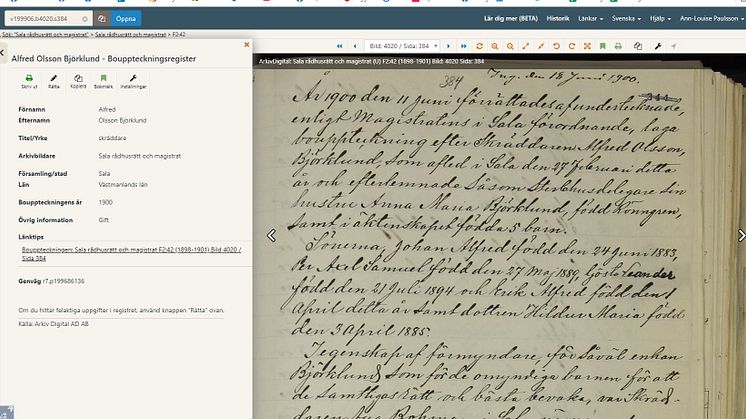 v199906.b4020.s384
Öppna
Lär dig mer (BETA) Historik Länkar Svenska Hjälp Ann-Louise Paulsson
Sök: "Sala rådhusrätt och magistrat" > Bouppteckningsregister > Sala rådhusrätt och magistrat > F2:42
Bild: 4020 / Sida: 384
ArkivDigital: Sala rådhusrätt och magistrat (U) F2:42 (1898-1901) Bild 4020 Sida: 384
Alfred Olsson Björklund - Bouppteckningsregister
Skriv ut Rätta Kopiera Bokmärk Inställningar
Förnamn Alfred
Efternamn Olsson Björklund
Titel/Yrke skräddare
Arkivbildare Sala rådhusrätt och magistrat
Församling/stad Sala
Län Västmanlands län
Bouppteckningens år 1900
Övrig information Gift
Länktips
Bouppteckningen: Sala rådhusrätt och magistrat F2:42 (1898-1901) Bild 4020 /
Sida 384
Genväg r7.p199686136
Om du hittar felaktiga uppgifter i registret, använd knappen "Rätta" ovan.
Källa: Arkiv Digital AD AB
384 Ing. den 18 Juni 1900.
344
År 1900 den 11 juni förrättades af undertecknade,
enligt Magistratens i Sala förordnande, laga
bouppteckning efter Skräddaren Alfred Olsson,
Björklund, som afled i Sala den 27 Februari detta
år och efterlemnade såsom Sterbhusdelegare sin
hustru Anna Maria Björklund, född Rönngren,
samt i äktenskapet födda 5 barn.
Sönerna, Johan Alfred född den 24 juni 1883,
Per Axel Samuel född den 27 Maj 1889, Gösta Leander
född den 21 Juli 1894 och Erik Alfred född den 1
April detta år samt dottren Hildur Maria född
den 3 April 1885.
I egenskap af förmyndare, för såväl enkan
Björklund, som för de omyndiga barnen för att
de samtligas rätt och bästa bevaka, var Skräd-
daren